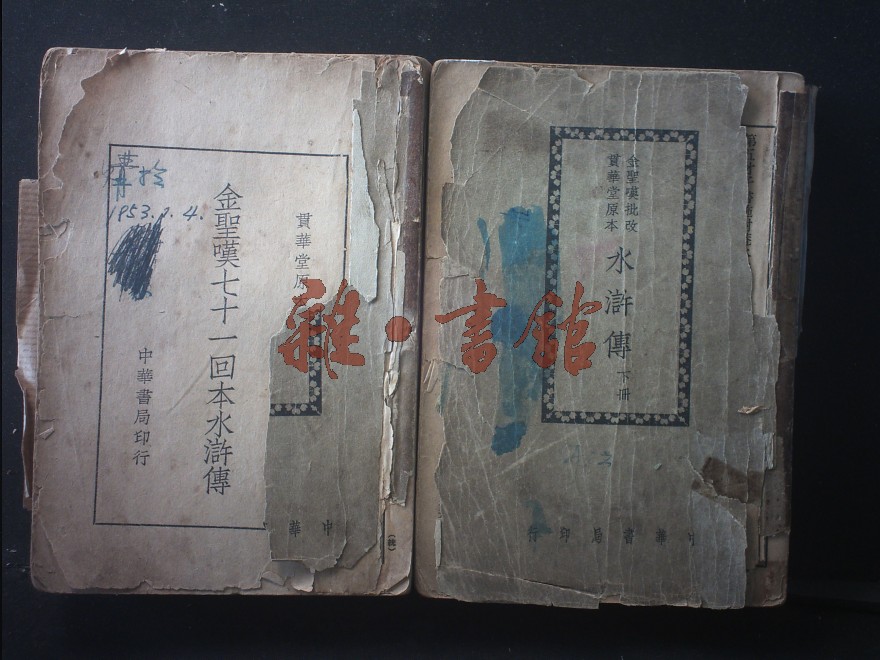 1953.
貫華堂原
金聖嘆七十一回本水滸傳
中華書局印行
中華
(統)
金聖嘆批改
貫華堂原本
水滸傳
下冊
中華書局印行
雜·書館